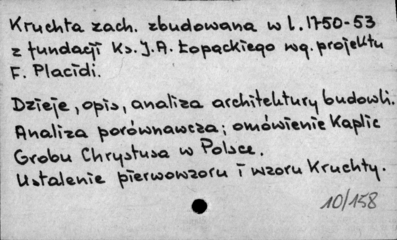 Kruchta zach. zbudowana w l. 1750-53
z fundacji Ks. J. A. Łopackiego wg. projektu
F. Placidi.
Dzieje, opis, analiza architektury budowli.
Analiza porównawcza; omówienie Kaplic
Grobu Chrystusa w Polsce.
Ustalenie pierwowzoru i wzoru Kruchty.
10/158